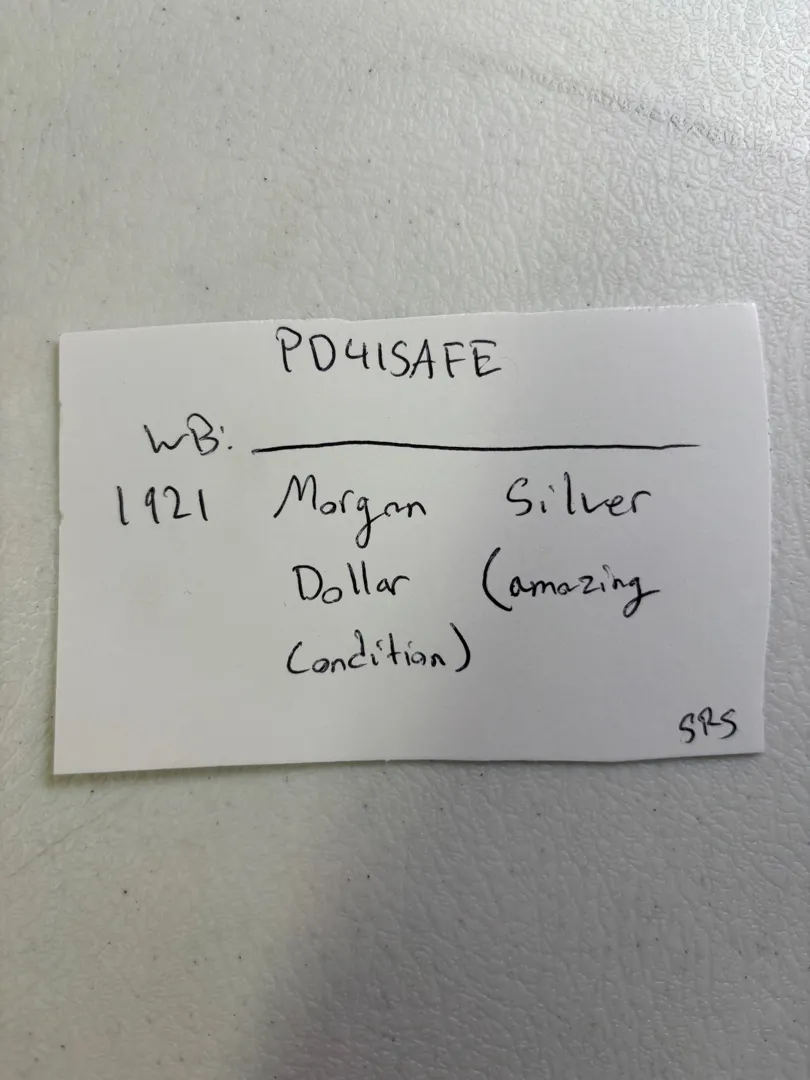 PD41SAFE
WB: ____________
1921 Morgan Silver
Dollar (amazing
Condition)
SRS